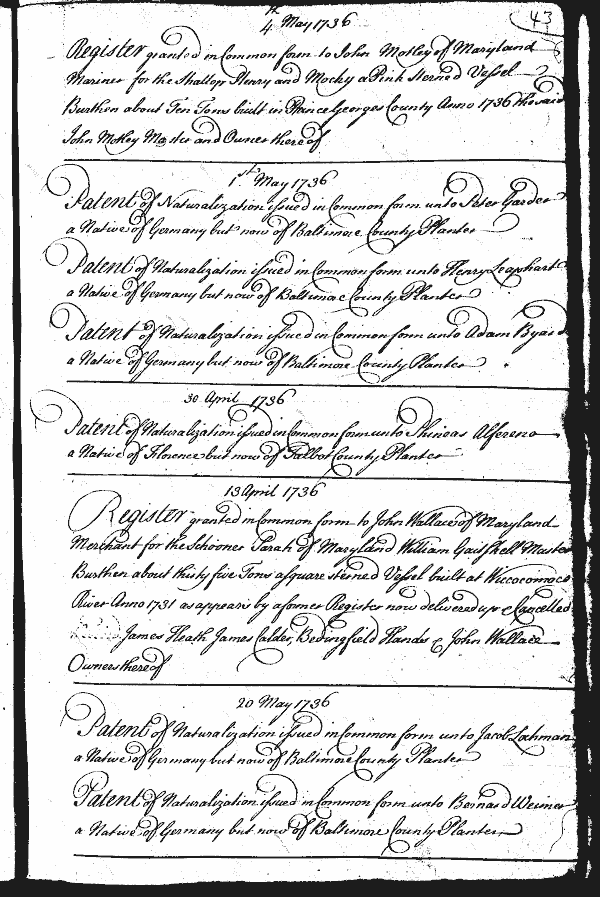 43
4th May 1736
Register granted in Common form to John Motley of Maryland
Mariner for the Shallop Henry and Mocky a Pink Sterned Vessel
Burthen about Ten Tons built in Prince Georges County Anno 1736 the said
John Motley Master and Owner thereof
1st May 1736
Patent of Naturalization issued in Common form unto Peter Garder
a Native of Germany but now of Baltimore County Planter
Patent of Naturalization issued in Common form unto Henry Leaphart
a Native of Germany but now of Baltimore County Planter
Patent of Naturalization issued in Common form unto Adam Byard
a Native of Germany but now of Baltimore County Planter
30 April 1736
Patent of Naturalization issued in Common form unto Phineas Alfereno
a Native of Florence but now of Talbot County Planter
13 April 1736
Register granted in Common form to John Wallace of Maryland
Merchant for the Schooner Sarah of Maryland William Master
Burthen about thirty five Tons a square sterned Vessel built at Wiccocomoco
River Anno 1731 as appears by a former Register now delivered up & Cancelled
James Heath James Calder, Bedingfield Hands & John Wallace
Owners thereof
20 May 1736
Patent of Naturalization issued in Common form unto Jacob Lochman
a Native of Germany but now of Baltimore County Planter
Patent of Naturalization issued in Common form unto Bernard Weimer
a Native of Germany but now of Baltimore County Planter